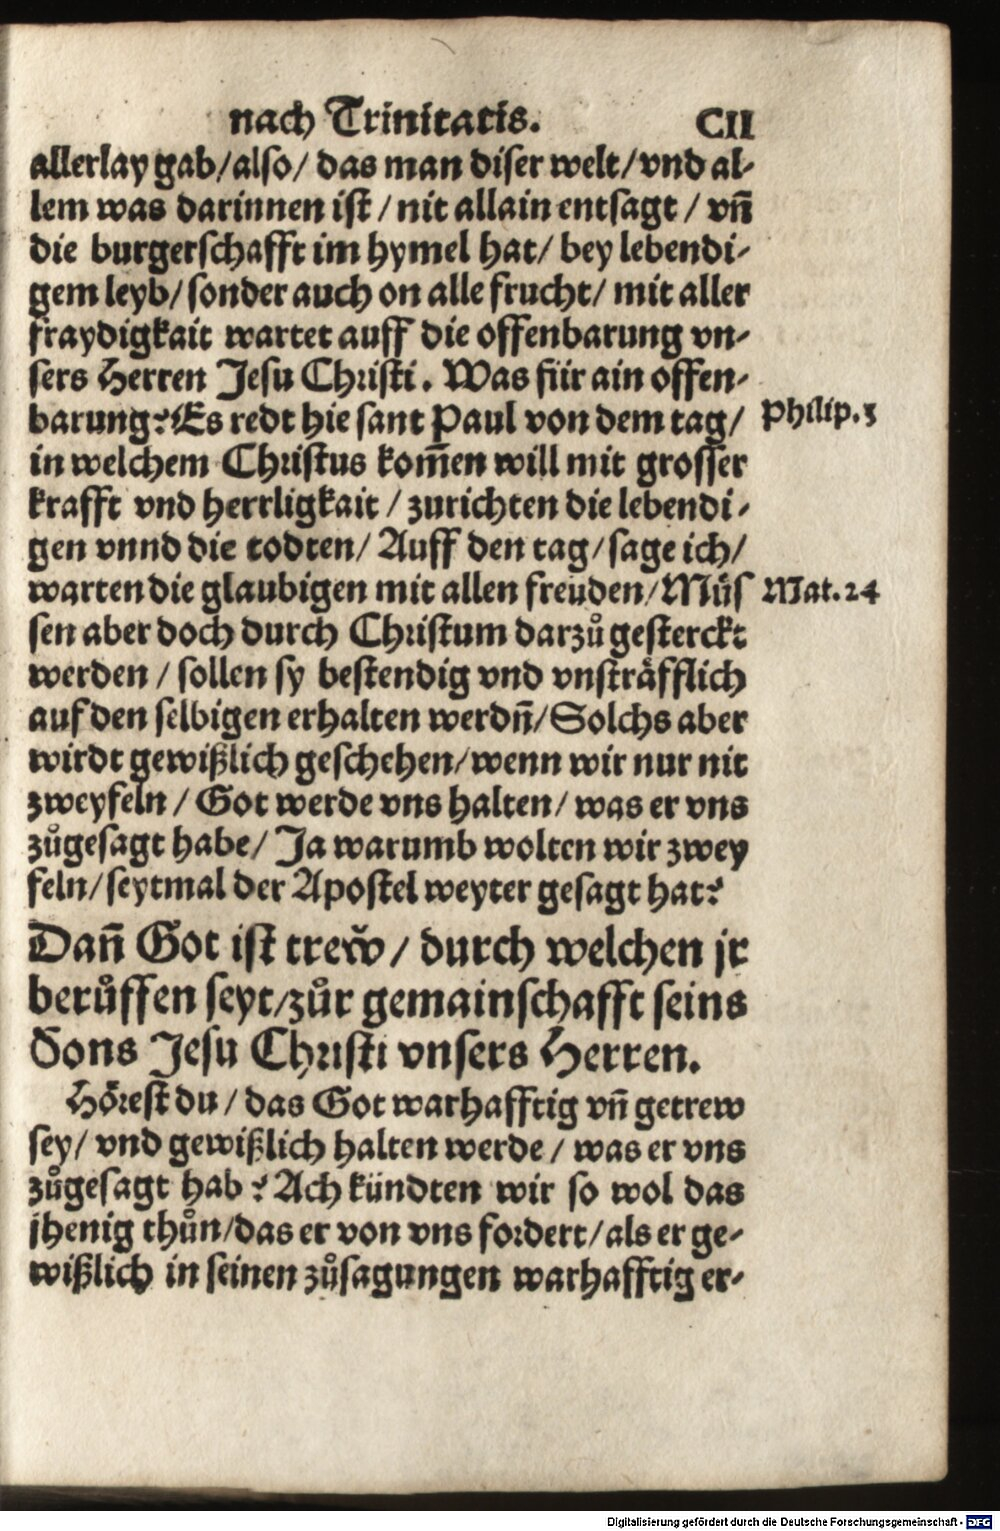 nach Trinitatis. CII
allerlay gab/also/ das man diser welt/vnd al-
lem was darinnen ist / nit allain entsagt / vñ
die burgerschafft im hymel hat/ bey lebendi-
gem leyb/ sonder auch on alle frucht/ mit aller
fraydigkait wartet auff die offenbarung vn-
sers Herren Jesu Christi. Was für ain offen-
barung? Es redt hie sant Paul von dem tag/
Philip. 3
in welchem Christus kom̄en will mit grosser
krafft vnd herrligkait / zurichten die lebendi-
gen vnnd die todten/ Auff den tag/ sage ich/
warten die glaubigen mit allen freuden/ Müs
Mat. 24
sen aber doch durch Christum darzů gesterckt
werden / sollen sy bestendig vnd vnsträfflich
auf den selbigen erhalten werdn̄/ Solchs aber
wirdt gewißlich geschehen/ wenn wir nur nit
zweyfeln / Got werde vns halten/ was er vns
zůgesagt habe/ Ja warumb wolten wir zwey
feln/ seytmal der Apostel weyter gesagt hat?
Dan̄ Got ist trew̆ / durch welchen jr
berůffen seyt/zůr gemainschafft seins
Sons Jesu Christi vnsers Herren.
Hörest du / das Got warhafftig vñ getrew
sey/ vnd gewißlich halten werde / was er vns
zůgesagt hab? Ach kündten wir so wol das
jhenig thůn/das er von vns fordert/ als er ge-
wißlich in seinen zůsagungen warhafftig er-
Digitalisierung gefördert durch die Deutsche Forschungsgemeinschaft - DFG